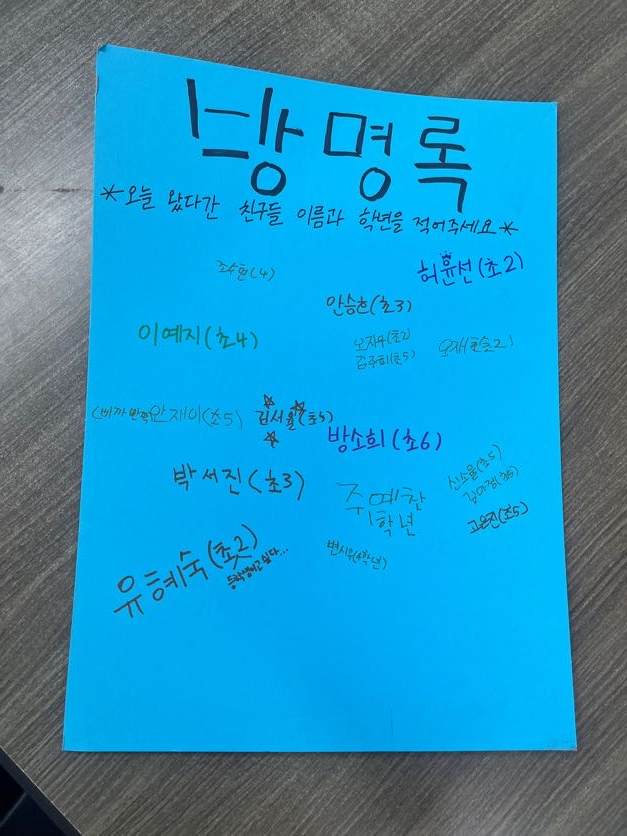 방명록
*오늘 왔다간 친구들 이름과 학년을 적어주세요*
조수현(4)
허윤선(초2)
안승현(초3)
이예지(초4)
오지우(초2)
김주희(초5)
안재이(초5)
김서율(초5)
방소희(초6)
박서진(초3)
주예찬
1학년
신소율(초5)
고은진(초5)
변시우(4학년)
유혜숙(초2)